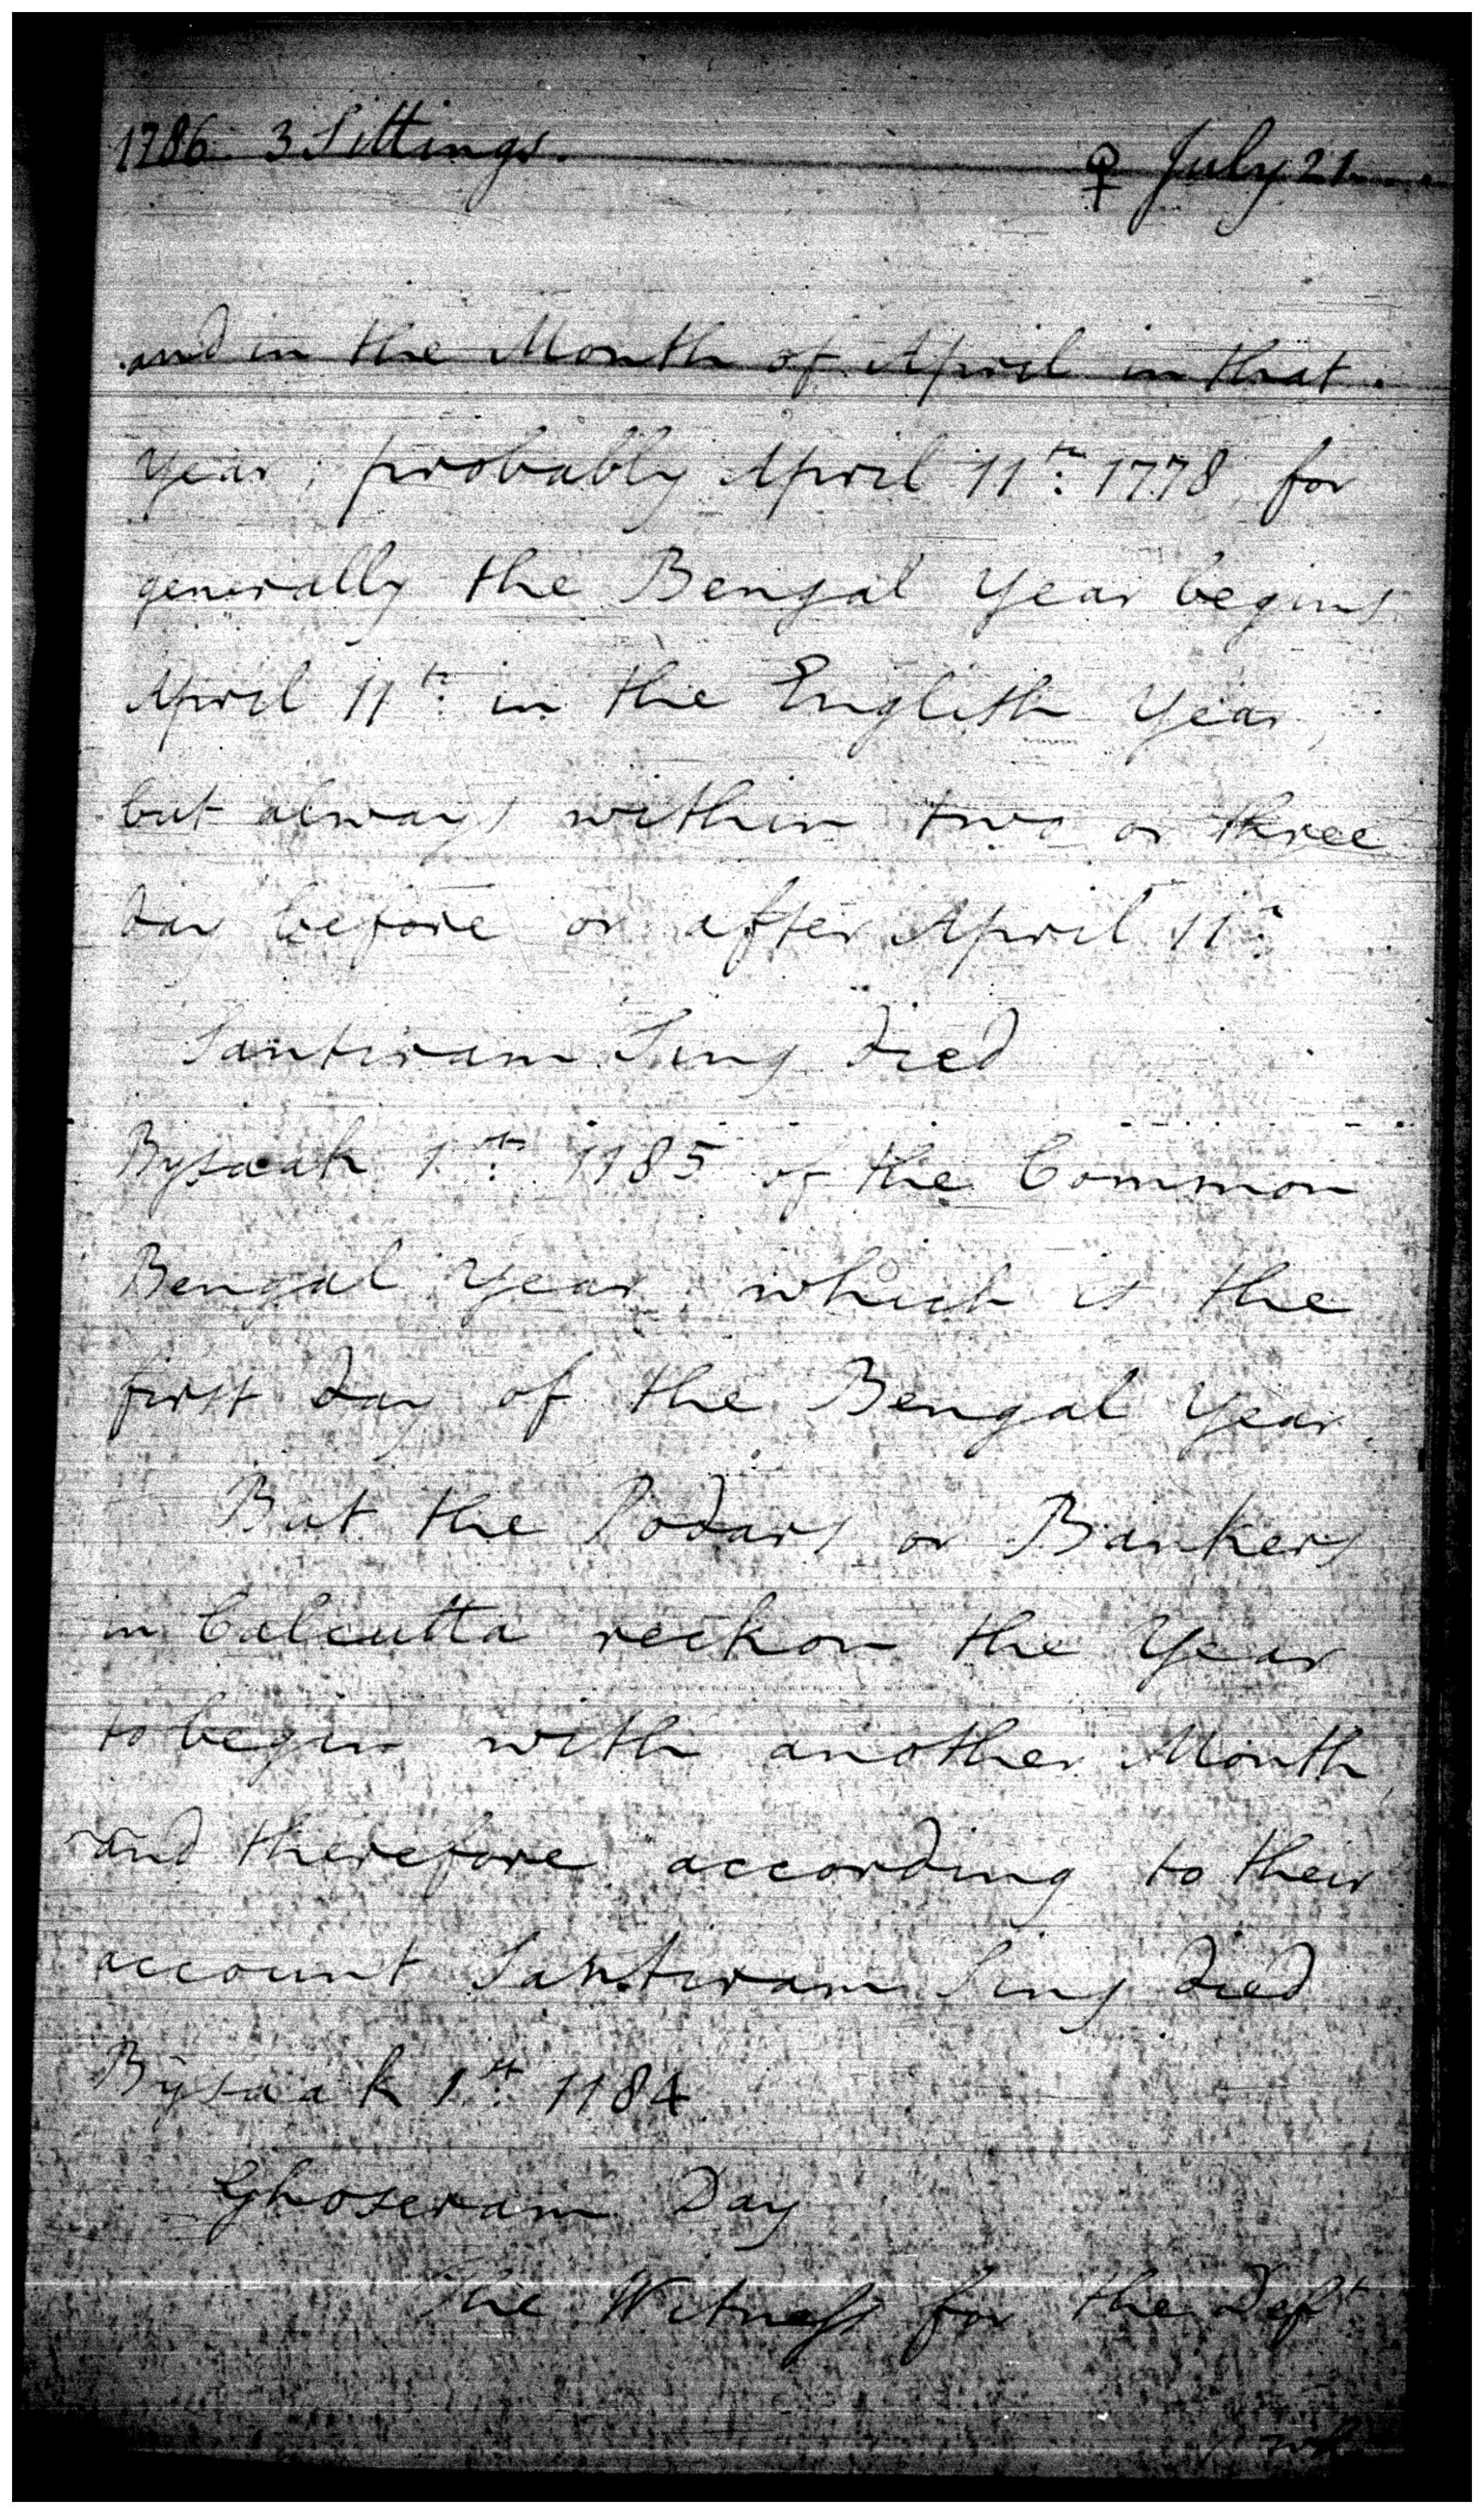 1786. 3 Sittings. ♀ July 21
and in the Month of April in that
year; probably April 11th: 1778, for
generally the Bengal Year begins
April 11th: in the English Year,
but always within two or three
day before or after April 11th:
Santiram Sing died
Bysaak 1st: 1185 of the Common
Bengal Year, which is the
first day of the Bengal Year.
But the Podars or Bankers
in Calcutta reckon the Year
to begin with another Month,
and therefore according to their
account Santiram Sing died
Bysaak 1st: 1184
Ghoseram Day
The Witness for the Deft